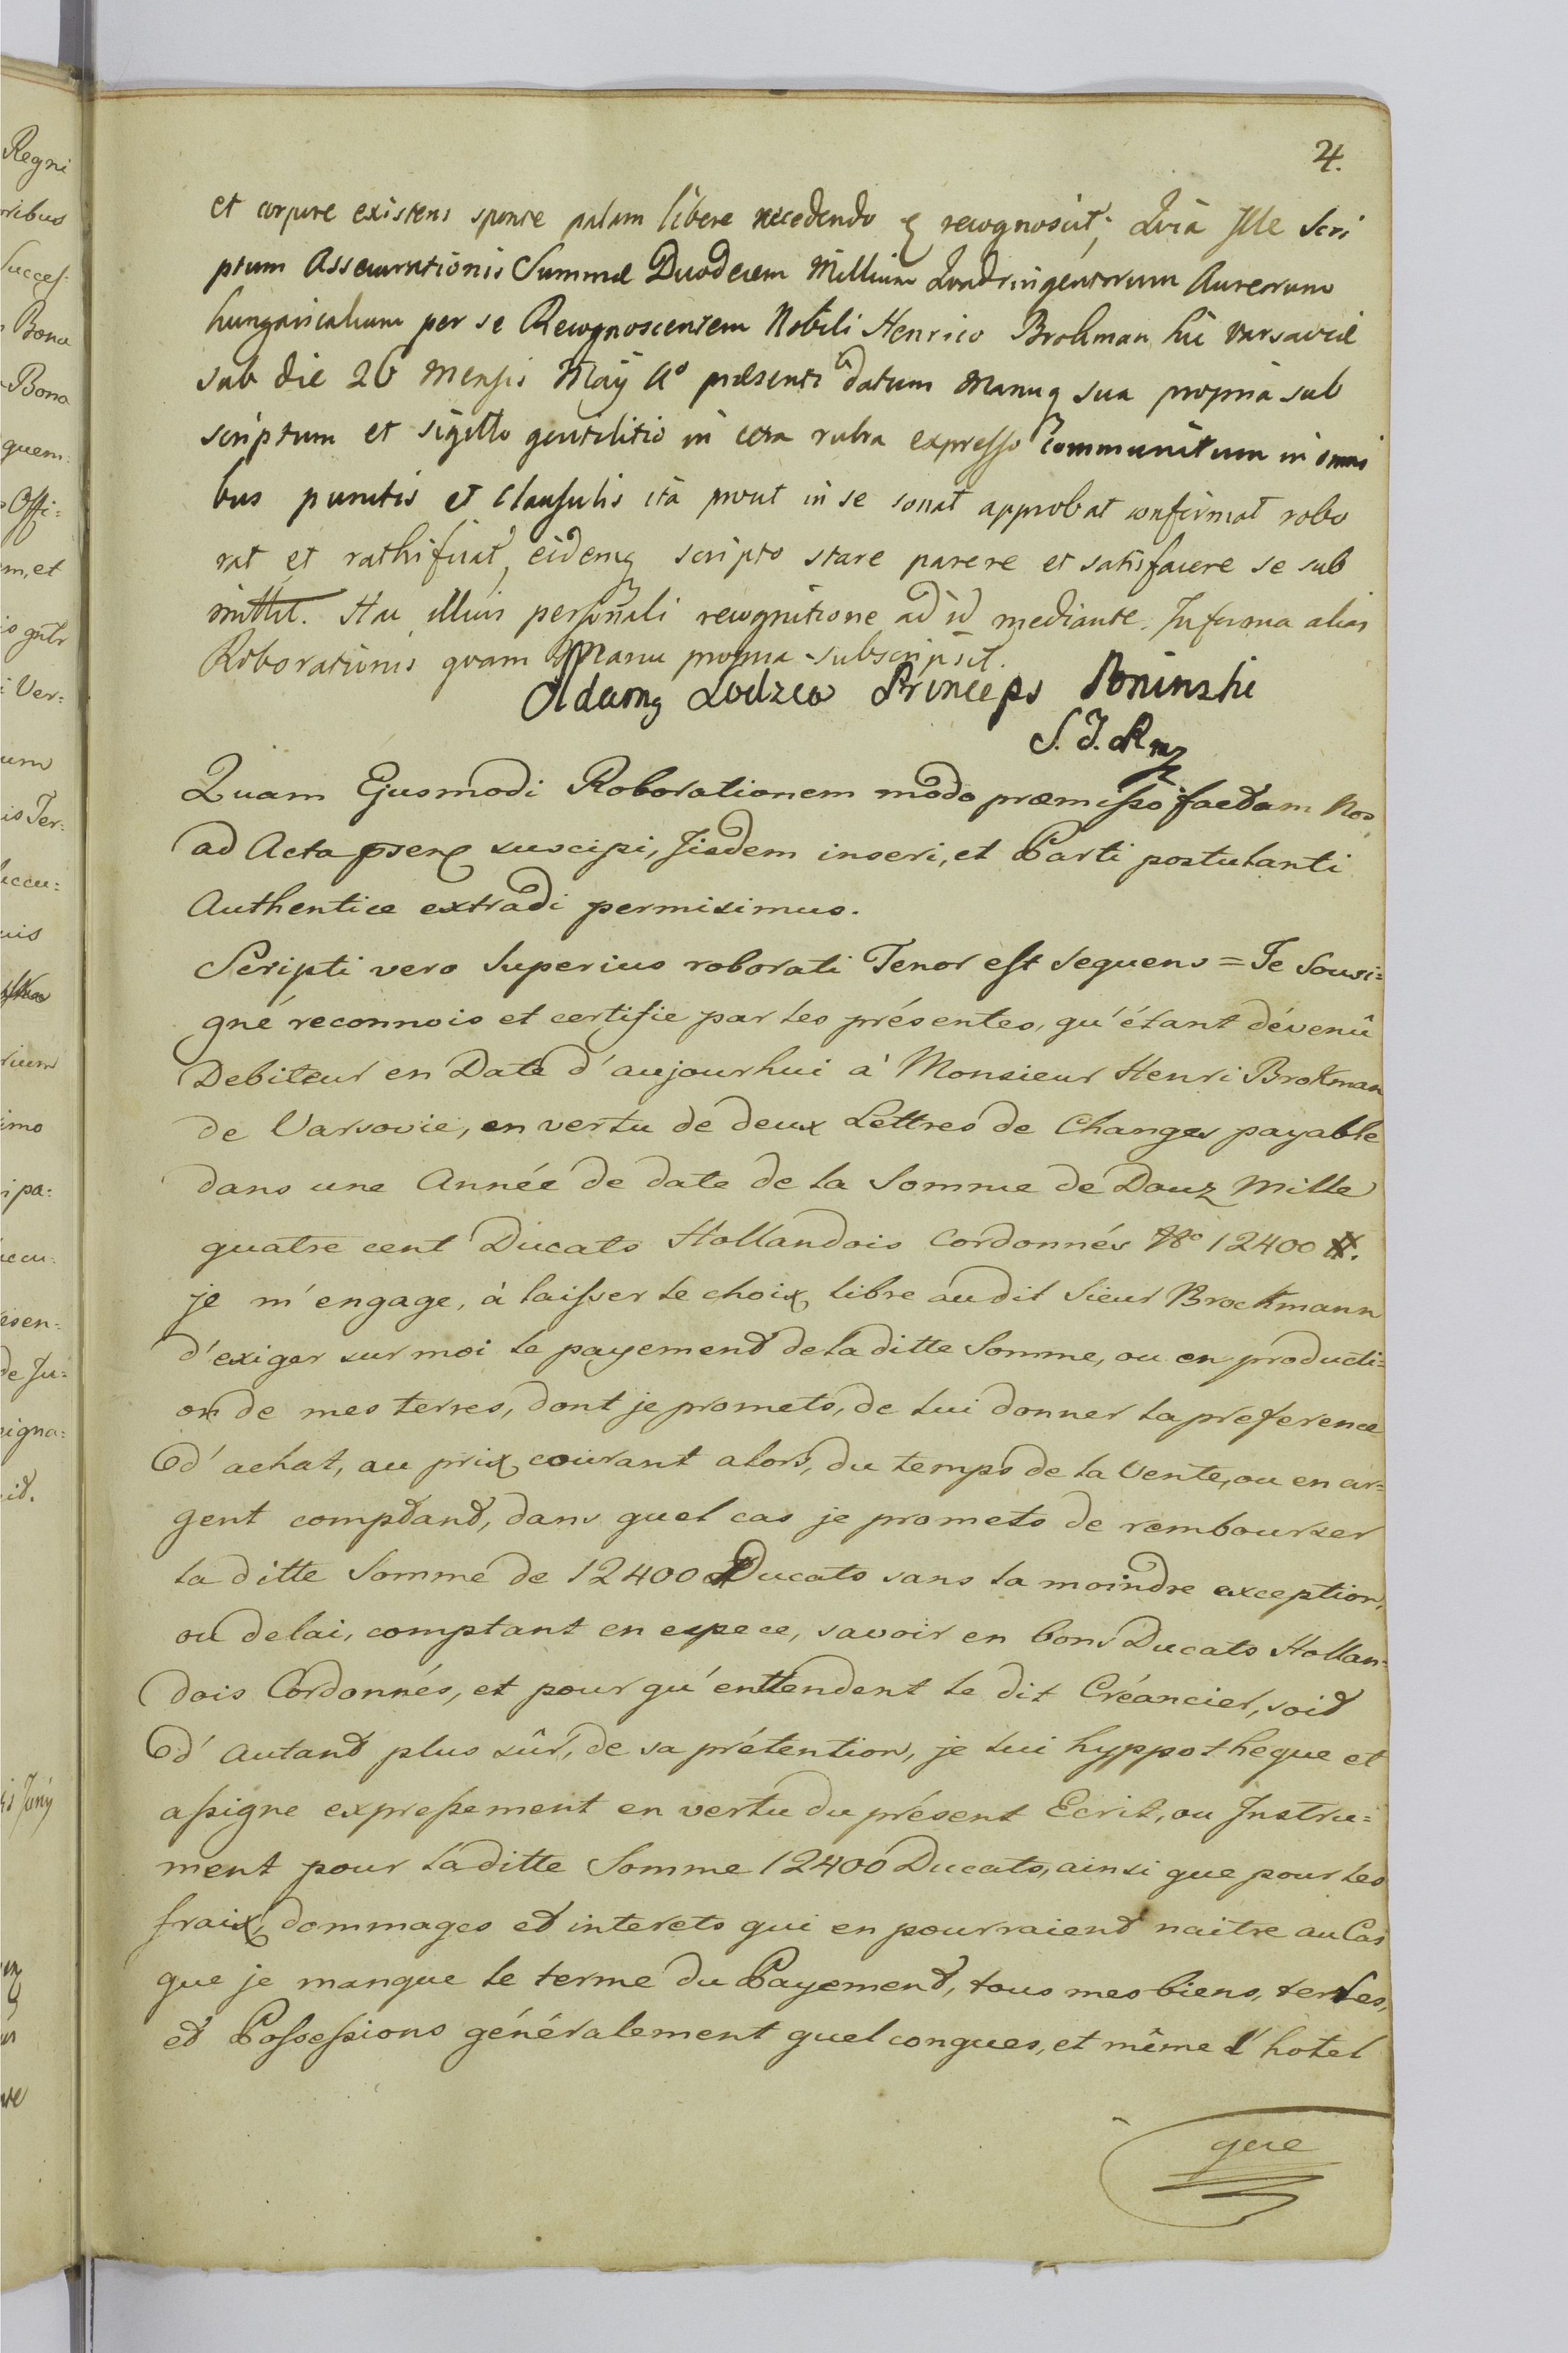 4.
et corpore existens sponte palam libere recedendo &c recognoscit; Quia Ille Scri
ptum Assecurationis Summæ Duodecem Millium Quadringentorum Aureorum
hungaricalium per se Recognoscentem Nobili Henrico Brohman hic Varsaviæ
sub die 26 Mensis Maÿ A° præsenti datum Manuq sua propria sub
scriptum et sigillo gentilitio in cera rubra expresso communitum in omni
bus punctis et Clausulis ita prout in se sonat approbat confirmat robo
rat et rathificat, eidemq scripto stare parere et satisfacere se sub
mittit. Hac illius personali recognitione ad id mediante. In forma alias
Roborationis quam Manu propria subscripsit.
Adamq Lodzia Princeps Poninski
S. J. R mp
Quam Ejusmodi Roborationem modo præmisso factam Nos
ad Acta prens suscipi, Jisdem inseri, et Parti postulanti
Authentice extradi permisimus.
Scripti vero Superius roborati Tenor est sequens = Je Sousi=
gné reconnois et certifie par les présentes, qu'étant dévenû
Debiteur en Date d'aujourhui à Monsieur Henri Brokman
de Varsovie, en vertu de deux Lettres de Changes payable
dans une Année de date de la Somme de Douz Mille
quatre cent Ducats Hollandois Cordonnés No 12400 #.
je m'engage, à laisser le choix libre audit Sieur Brockmann
d'exiger sur moi le payement de la ditte Somme, ou en producti=
on de mes terres, dont je promets, de lui donner la preference
d'achat, au prix courant alors, du temps de la Vente, ou en ar=
gent comptant, dans quel cas je promets de rembourser
la ditte Somme de 12400 Ducats sans la moindre exception,
ou delai, comptant en espece, savoir en bons Ducats Hollan=
dois Cordonnés, et pour qu'enttendent le dit Créancier, soit
d'autant plus sûr, de sa prétention, je lui hyppotheque et
assigne expressement en vertu du présent Ecrit, ou Instru=
ment pour laditte Somme 12400 Ducats, ainsi que pour les
fraix, dommages et interets qui en pourraient naitre au Cas
que je manque le terme du Payement, tous mes biens, terres,
et Possessions généralement quelconques, et même l'hotel
que